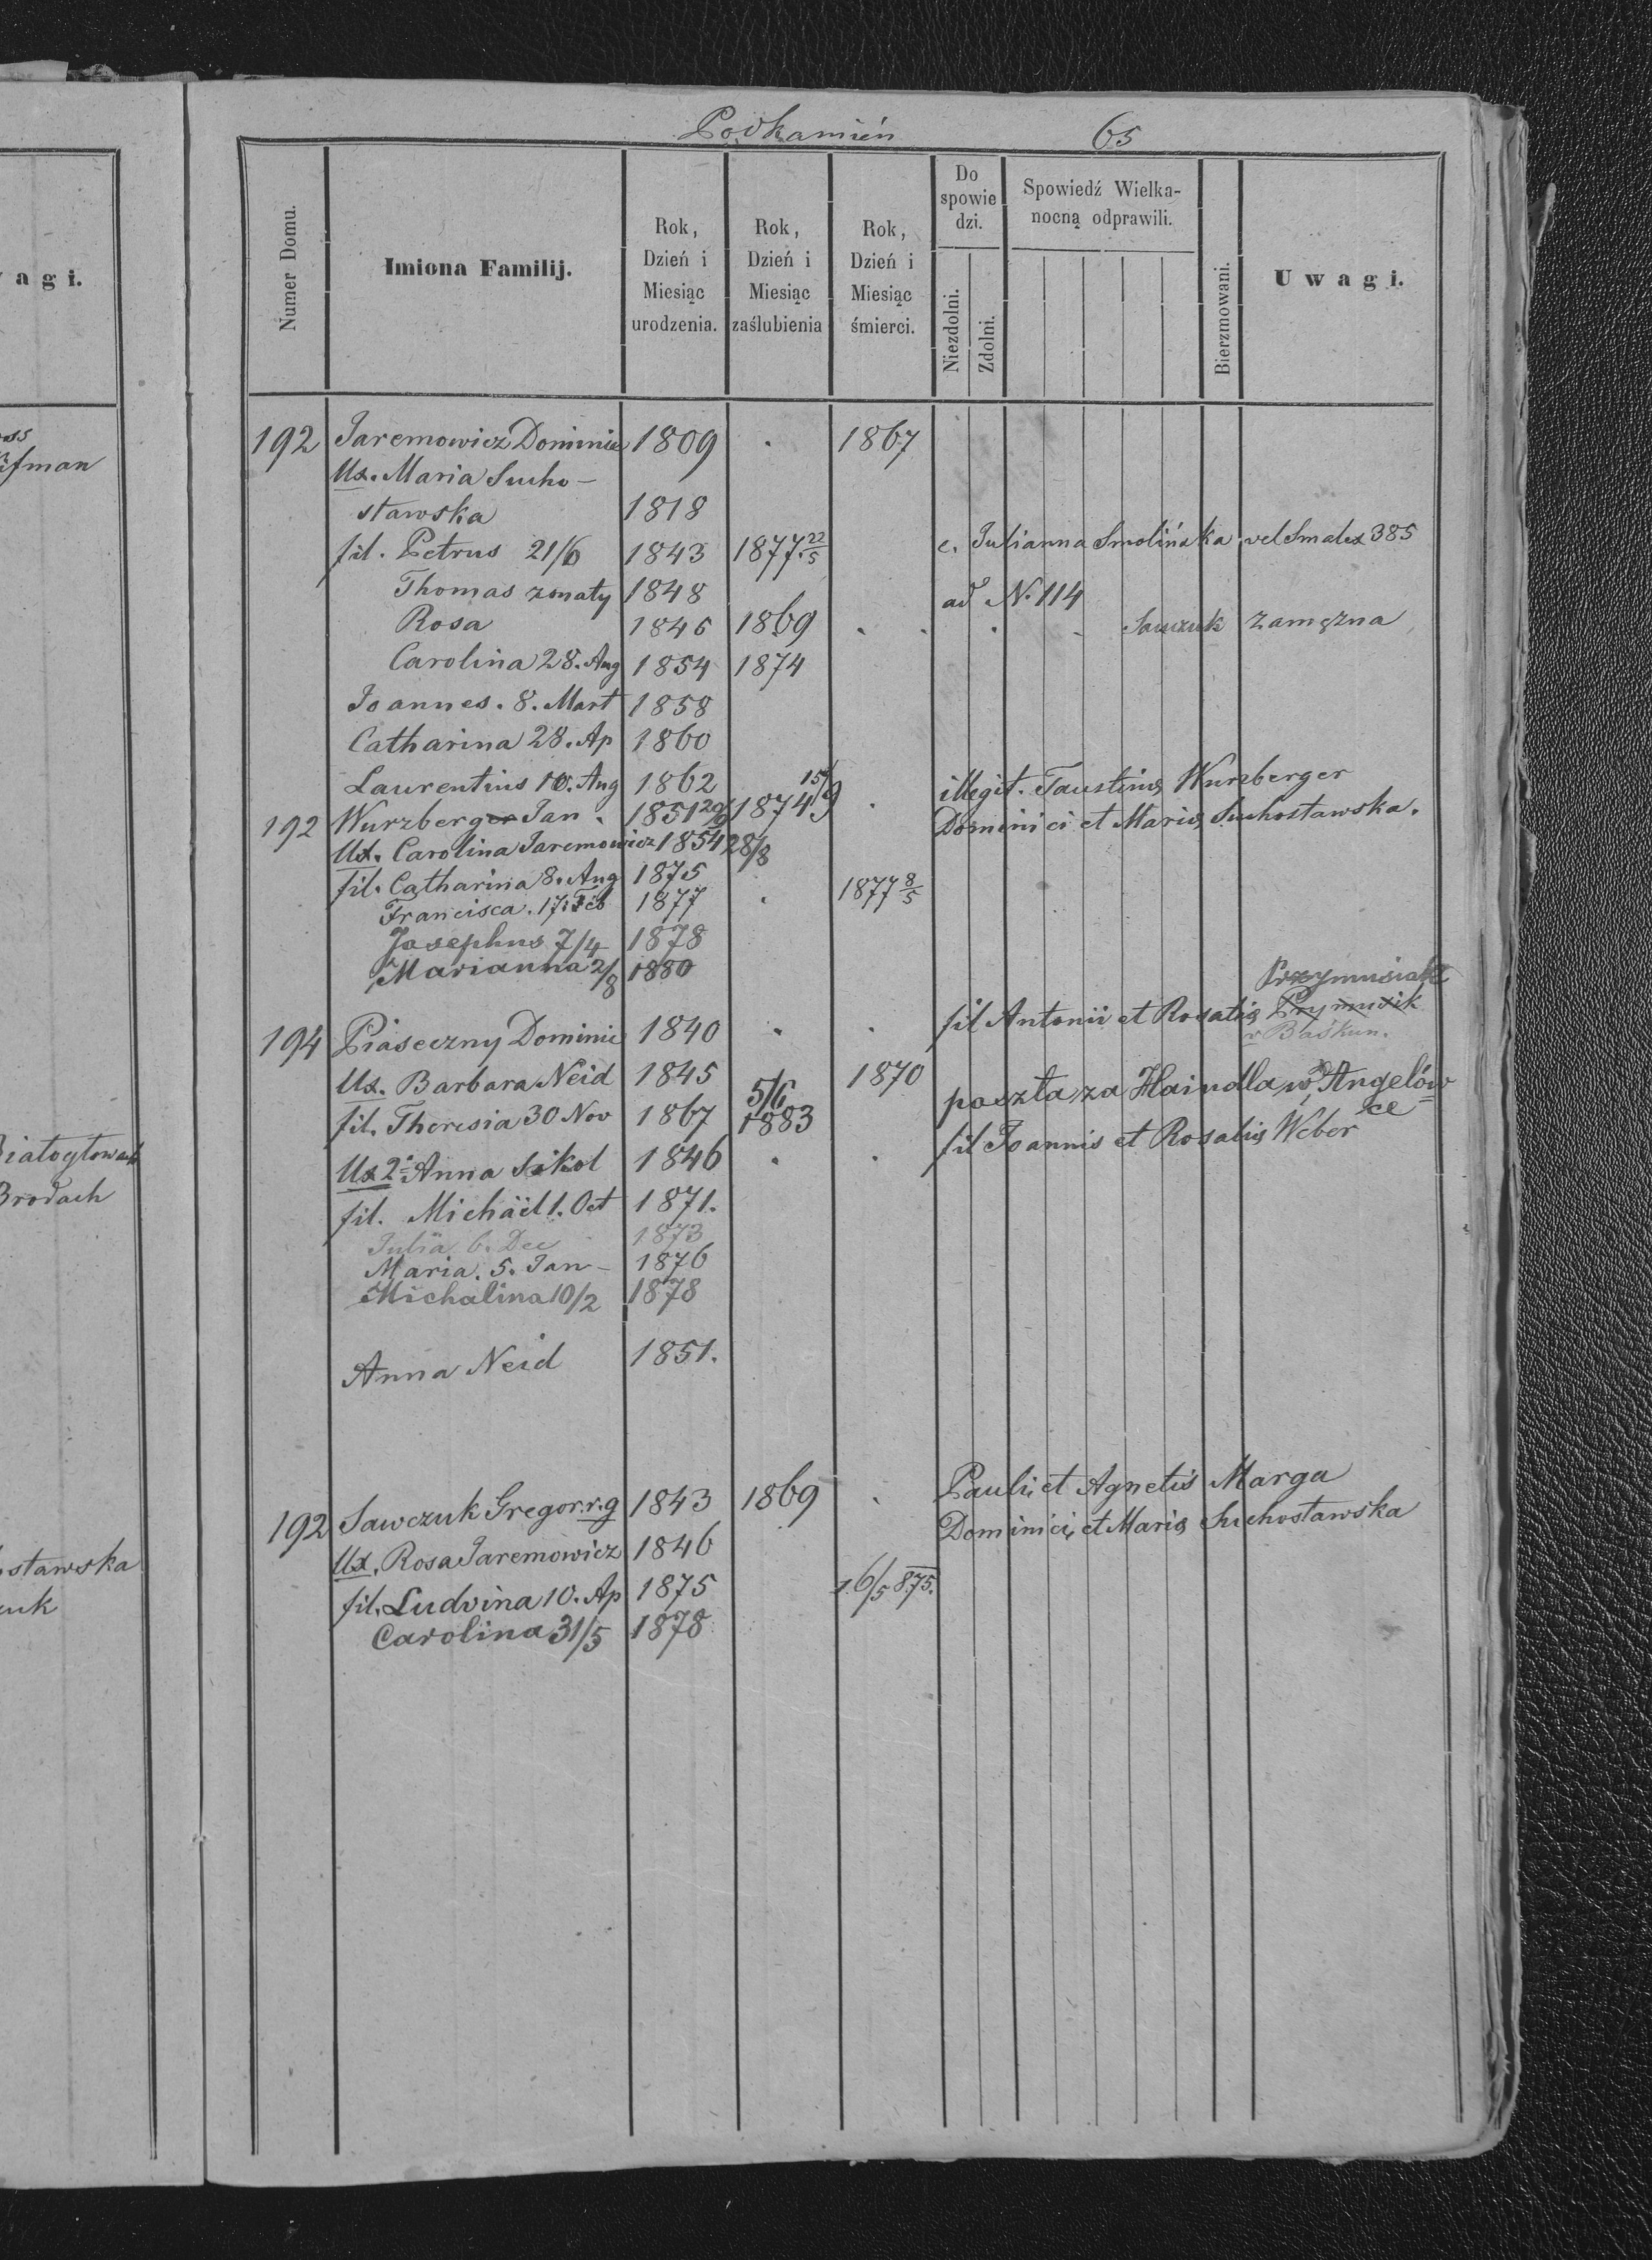 Podkamień 65
a g i.
Numer Domu. Imiona Familij. Rok, Dzień i Miesiąc urodzenia. Rok, Dzień i Miesiąc zaślubienia Rok, Dzień i Miesiąc śmierci. Do spowie dzi. Niezdolni. Zdolni. Spowiedź Wielka- nocną odprawili. Bierzmowani. U w a g i.
192 Jaremowicz Dominic 1809 . 1867
Ux. Maria Sucho-
stawska 1818
fil. Petrus 21/6 1843 1877 22/5 c. Julianna Smolińska vel Smalex 385
Thomas żonaty 1848 ad N. 114
Rosa 1846 1869 . . . . Sawczuk zamężna
Carolina 28. Aug 1854 1874
Joannes. 8. Mart 1858
Catharina 28. Ap 1860
Laurentius 10. Aug 1862
192 Wurzberger Jan . 1851 29/9 1874 15/9 . illegit. Faustinę Wurzberger
Ux. Carolina Jaremowicz 1854 28/8 Dominici et Marię Suchostawska.
fil. Catharina 8. Aug 1875
Francisca. 17. Feb 1877 . 1877 8/5
Josephus 7/4 1878
Marianna 2/8 1880
Przymusiak
194 Piaseczny Dominic 1840 . . fil Antonii et Rosalię Prymusik
v Baskun.
Ux. Barbara Neid 1845 1870
fil. Theresia 30 Nov 1867 5/6 1883 poszła za Haindla w Angelów=
ce
Ux 2. Anna Sikol 1846 . . fil Joannis et Rosalię Weber
fil. Michäel 1. Oct 1871.
Julia 6. Dec 1873
Maria. 5. Jan - 1876
Michalina 10/2 1878
Anna Neid 1851.
192 Sawczuk Gregor. r. g 1843 1869 . Pauli et Agnetis Marga
Ux. Rosa Jaremowicz 1846 Dominici et Marię Suchostawska
fil. Ludvina 10. Ap 1875 16/5 875.
Carolina 31/5 1878
ifman
Brodach
stawska
uk